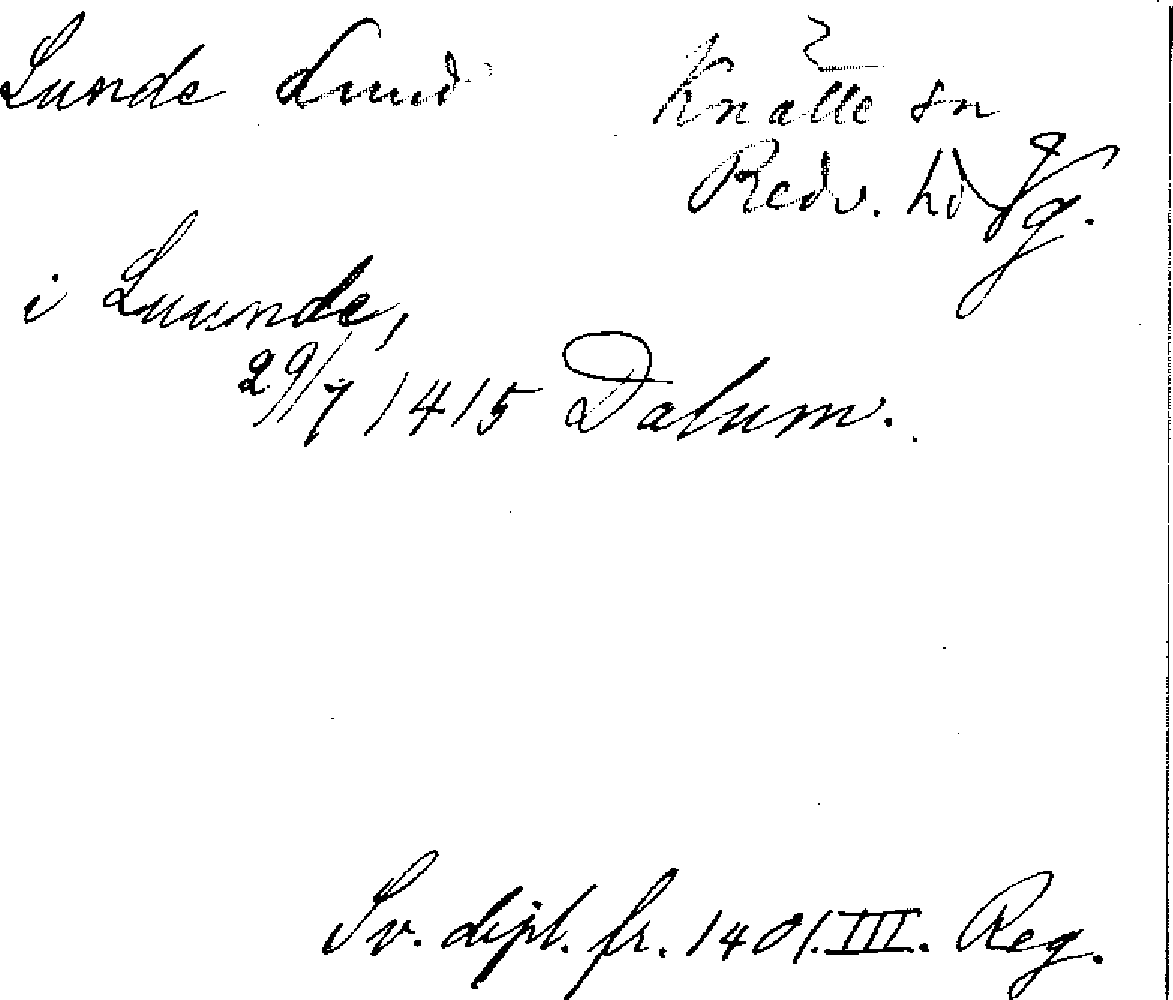 Lunde Lund Knätte sn
Redv. hd Vg.
i Luunde,
29/7 1415 Dalum.
Sv. dipl. fr. 1401. III. Reg.